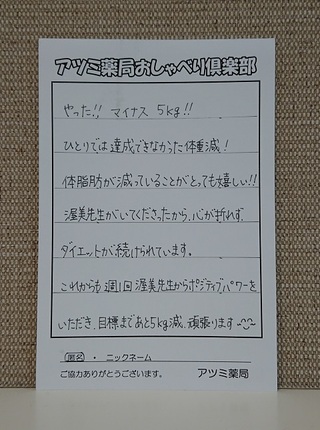 アツミ薬局おしゃべり倶楽部
やった!! マイナス 5kg!!
ひとりでは達成できなかった体重減!
体脂肪が減っていることがとっても嬉しい!!
渥美先生がいてくださったから、心が折れず、
ダイエットが続けられています。
これからも週1回渥美先生からポジティブパワーを
いただき、目標まであと5kg減、頑張ります
匿名 ・ ニックネーム
ご協力ありがとうございます。 アツミ薬局